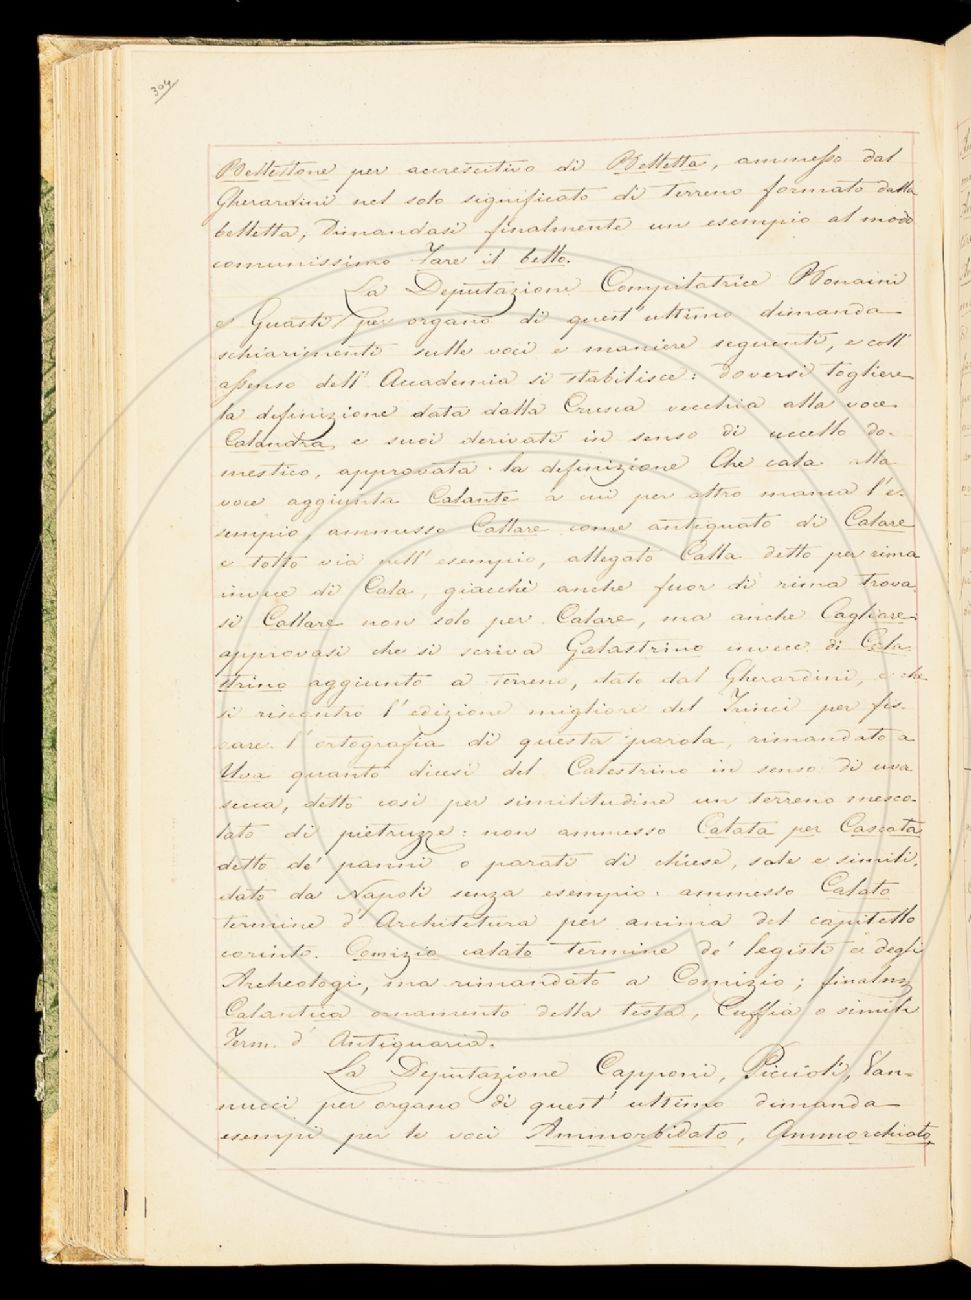 304
Bellettone per accrescitivo di Belletta, ammesso dal
Gherardini nel solo significato di terreno formato dalla
belletta; Dimandasi finalmente un esempio al modo
comunissimo Fare il bello.
La Deputazione Compilatrice Bonaini
e Guasti per organo di quest'ultimo dimanda
schiarimenti sulle voci e maniere seguenti, e coll'
assenso dell'Accademia si stabilisce: doversi togliere
la definizione data dalla Crusca vecchia alla voce
Calandra, e suoi derivati in senso di uccello do-
mestico, approvata la definizione Che cala alla
voce aggiunta Calante a cui per altro manca l'e-
sempio, ammesso Callare come antiquato di Calare
e tolto via nell'esempio, allegato Calla detto per rima
invece di Cala, giacchè anche fuor di rima trova-
si Callare non solo per Calare, ma anche Cagliare:
approvasi che si scriva Galastrino invece di Cala-
strino aggiunto a terreno, dato dal Gherardini, e che
si riscontri l'edizione migliore del Trinci per fis-
sare l'ortografia di questa parola, rimandato a
Uva quanto dicesi del Calestrino in senso di uva
secca, detto così per similitudine un terreno mesco-
lato di pietruzze: non ammesso Calata per Cascata
detto de' panni o parati di chiese, sale e simili,
dato da Napoli senza esempio: ammesso Calato
termine d'Architetura per anima del capitello
corinto. Comizio calato termine de' legisti e degli
Archeologi, ma rimandato a Comizio; finalmᵉ
Calantica ornamento della testa, Cuffia o simile
Term. d'Antiquaria.
La Deputazione Capponi, Piccioli, Van-
nucci per organo di quest'ultimo dimanda
esempi per le voci Ammorbidato, Ammorchiato,